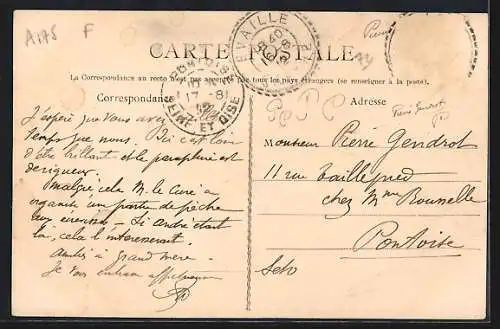 A175 F
Pierre
CARTE POSTALE
VAILLE
La Correspondance au recto n'est pas acceptée par tous les pays étrangers (se renseigner à la poste).
PONTOISE
17 -8
SEINE-ET-OISE
Correspondance
Adresse
Pierre Gendrot
J'espère que vous avez
temps que nous. Ici c'est loin
d'être brillant et le parapluie est
de rigueur.
Malgré cela M. le Curé a
organisé une partie de pêche
aux écrevisses — Si André était
là, cela l'intéresserait.
Amitiés à grand'mère.
Je vous embrasse
Monsieur Pierre Gendrot
11 rue Taillepied
chez Mme Rounelle
Pontoise
Seto